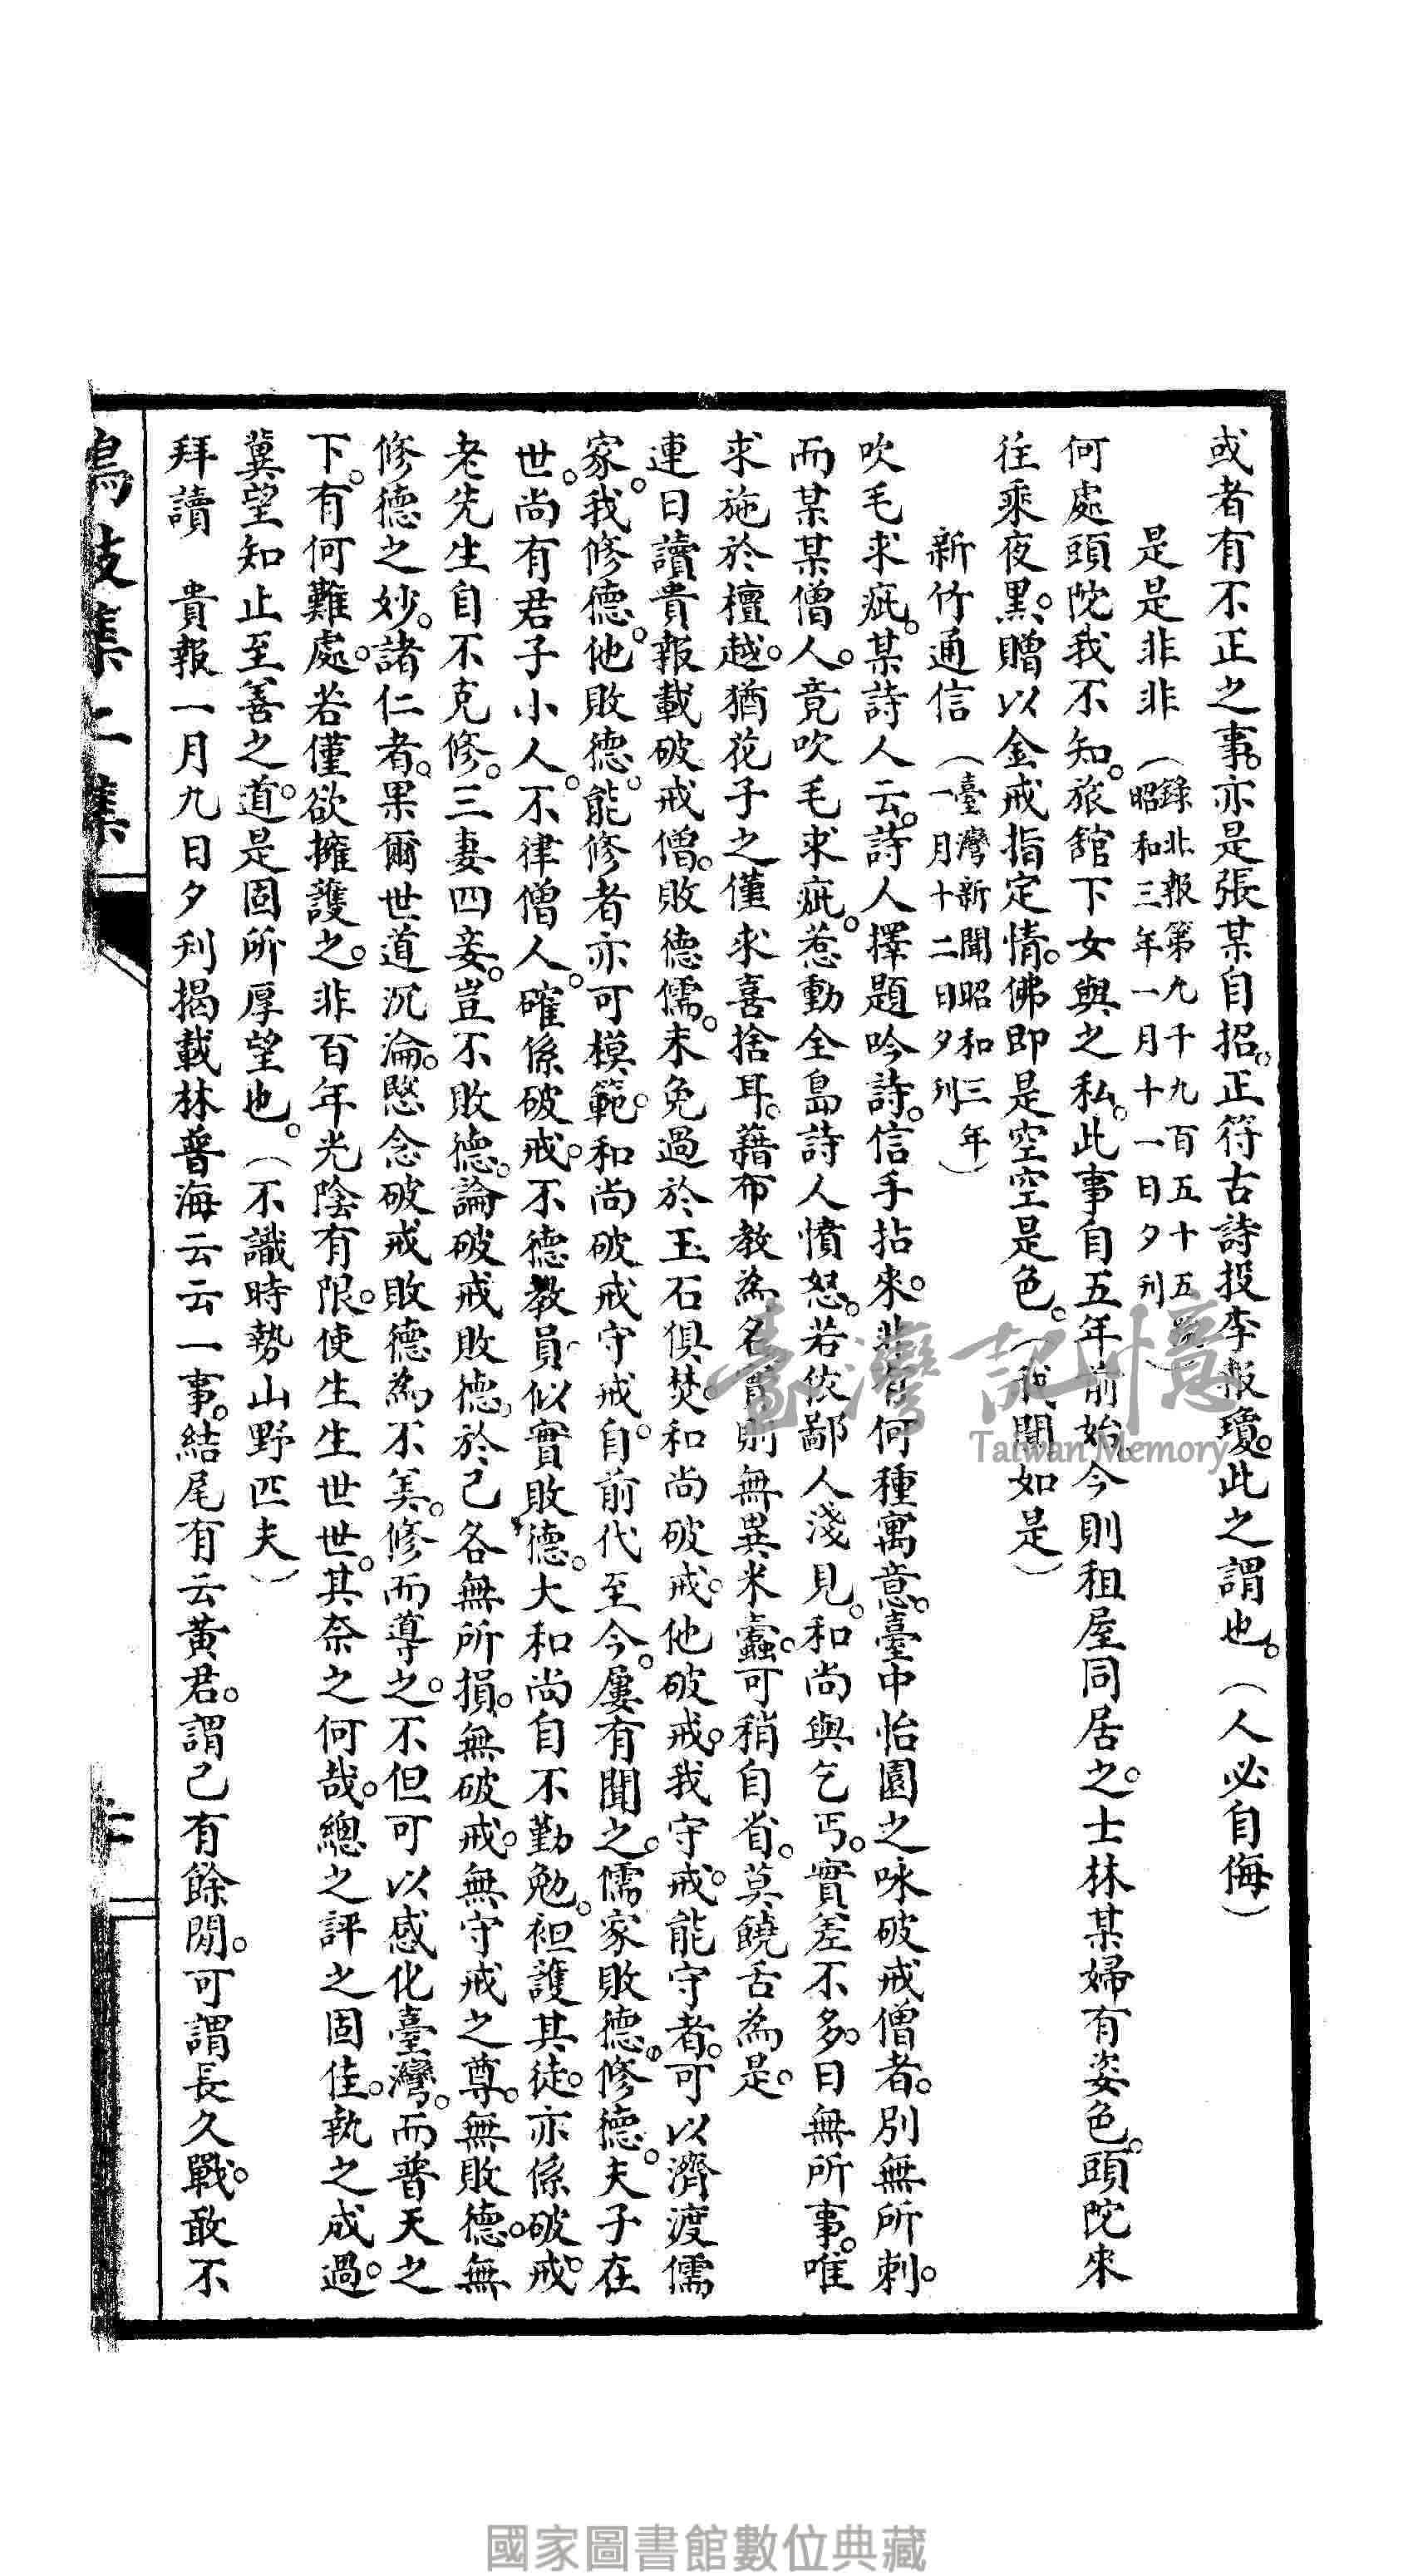 或者有不正之事。亦是張某自招。正符古詩投李报瓊。此之謂也。（人必自侮）
是是非非（錄北報第九千九百五十五號昭和三年一月十一日夕刊）
何處頭陀我不知。旅舘下女與之私。此事自五年前始。今則租屋同居之。士林某婦有姿色。頭陀來
往乘夜黑。贈以金戒指定情。佛即是空空是色。（我聞如是）
新竹通信（臺灣新聞昭和三年一月十二日夕刊）
吹毛求疵。某詩人云。詩人擇題吟詩。信手拈來。非有何種寓意。臺中怡園之咏破戒僧者。別無所刺。
而某某僧人。竟吹毛求疵。惹動全島詩人憤怒。若依鄙人淺見。和尚與乞丐。實差不多。日無所事。唯
求施於檀越。猶花子之僅求喜捨耳。藉布教為名實則無異米蠹。可稍自省。莫饒舌為是。
連日讀貴報載破戒僧。敗德儒。未免過於玉石俱焚。和尚破戒。他破戒。我守戒。能守者。可以濟渡儒
家。我修德。他敗德。能修者亦可模範。和尚破戒守戒。自前代至今。屢有聞之。儒家敗德。修德。夫子在
世。尚有君子小人。不律僧人。確係破戒。不德教員。似實敗德。大和尚自不勤勉。袒護其徒。亦係破戒。
老先生自不克修。三妻四妾。豈不敗德。論破戒敗德。於己各無所損。無破戒。無守戒之尊。無敗德。無
修德之妙。諸仁者。果爾世道沉淪。愍念破戒敗德為不美。修而導之。不但可以感化臺灣。而普天之
下。有何難處。若僅欲擁護之。非百年光陰有限。使生生世世。其奈之何哉。總之評之固佳。執之成過。
冀望知止至善之道。是固所厚望也。（不識時勢山野匹夫）
拜讀　貴報一月九日夕刋揭載林普海云云一事。結尾有云黃君。謂己有餘閒。可謂長久戰。敢不
鳴鼓集二集
臺灣記憶
Taiwan Memory
國家圖書館數位典藏